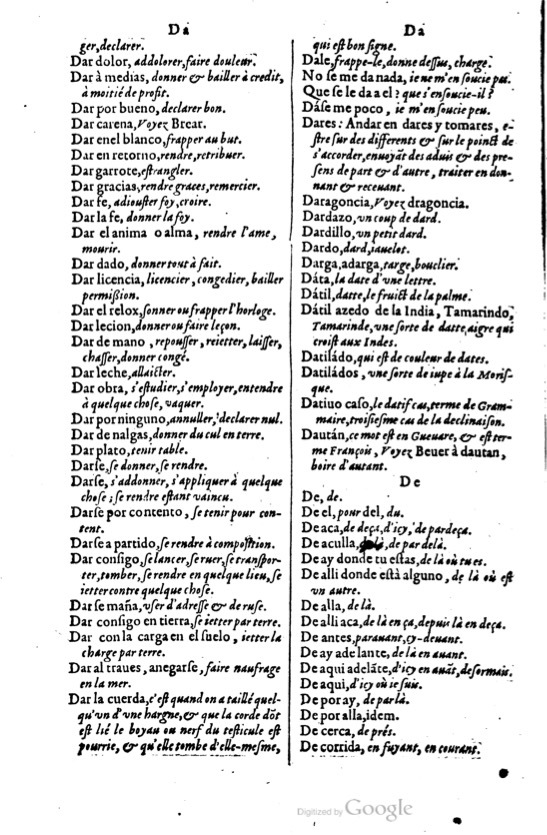 Da
ger, declarer.
Dar dolor, addolorer, faire douleur.
Dar à medias, donner & bailler à credit,
à moitié de profit.
Dar por bueno, declarer bon.
Dar carena, Voyez Brear.
Dar enel blanco, frapper au but.
Dar en retorno, rendre, retribuer.
Dar garrote, estrangler.
Dar gracias, rendre graces, remercier.
Dar fe, adiouster foy, croire.
Dar la fe, donner la foy.
Dar el anima o alma, rendre l'ame,
mourir.
Dar dado, donner tout à fait.
Dar licencia, licencier, congedier, bailler
permißion.
Dar el relox, sonner ou frapper l'horloge.
Dar lecion, donner ou faire leçon.
Dar de mano, repousser, reietter, laisser,
chasser, donner congé.
Dar leche, allaicter.
Dar obra, s'estudier, s'employer, entendre
à quelque chose, vaquer.
Dar por ninguno, annuller, declarer nul.
Dar de nalgas, donner du cul en terre.
Dar plato, tenir table.
Darse, se donner, se rendre.
Darse, s'addonner, s'appliquer à quelque
chose; se rendre estant vaincu.
Darse por contento, se tenir pour con-
tent.
Darse a partido, se rendre à composition.
Dar consigo, se lancer, se ruer, se transpor-
ter, tomber, se rendre en quelque lieu, se
ietter contre quelque chose.
Darse maña, vser d'adresse & de ruse.
Dar consigo en tierra, se ietter par terre.
Dar con la carga en el suelo, ietter la
charge par terre.
Dar al traues, anegarse, faire naufrage
en la mer.
Dar la cuerda, c'est quand on a taillé quel-
qu'vn d'vne hargne, & que la corde dõt
est lié le boyau ou nerf du testicule est
pourrie, & qu'elle tombe d'elle-mesme,
Da
qui est bon signe.
Dale, frappe-le, donne dessus, charge.
No se me da nada, ie ne m'en soucie pas.
Que se le da a el? que s'en soucie-il?
Dáse me poco, ie m'en soucie peu.
Dares: Andar en dares y tomares, e-
stre sur des differents & sur le poinct de
s'accorder, enuoyãt des aduis & des pre-
sens de part & d'autre, traiter en don-
nant & receuant.
Daragoncia, Voyez dragoncia.
Dardazo, vn coup de dard.
Dardillo, vn petit dard.
Dardo, dard, iauelot.
Darga, adarga, targe, bouclier.
Dáta, la date d'vne lettre.
Dátil, datte, le fruict de la palme.
Dátil azedo de la India, Tamarindo,
Tamarinde, vne sorte de datte, aigre qui
croist aux Indes.
Datiládo, qui est de couleur de dates.
Datiládos, vne sorte de iupe à la Moris-
que.
Datiuo caso, le datif cas, terme de Gram-
maire, troisiesme cas de la declinaison.
Daután, ce mot est en Gueuare, & est ter-
me François, Voyez Beuer à dautan,
boire d'autant.
De
De, de.
De el, pour del, du.
De aca, de deça, d'icy, de par deça.
De aculla, de par delà.
De ay donde tu estas, de là où tu es.
De alli donde està alguno, de là où est
vn autre.
De alla, de là.
De alli aca, de là en ça, depuis là en deça.
De antes, parauant, cy-deuant.
De ay adelante, de là en auant.
De aqui adelãte, d'icy en auãt, desormais.
De aqui, d'icy où ie suis.
De por ay, de par là.
De por alla, idem.
De cerca, de prés.
De corrida, en fuyant, en courant.
Digitized by Google